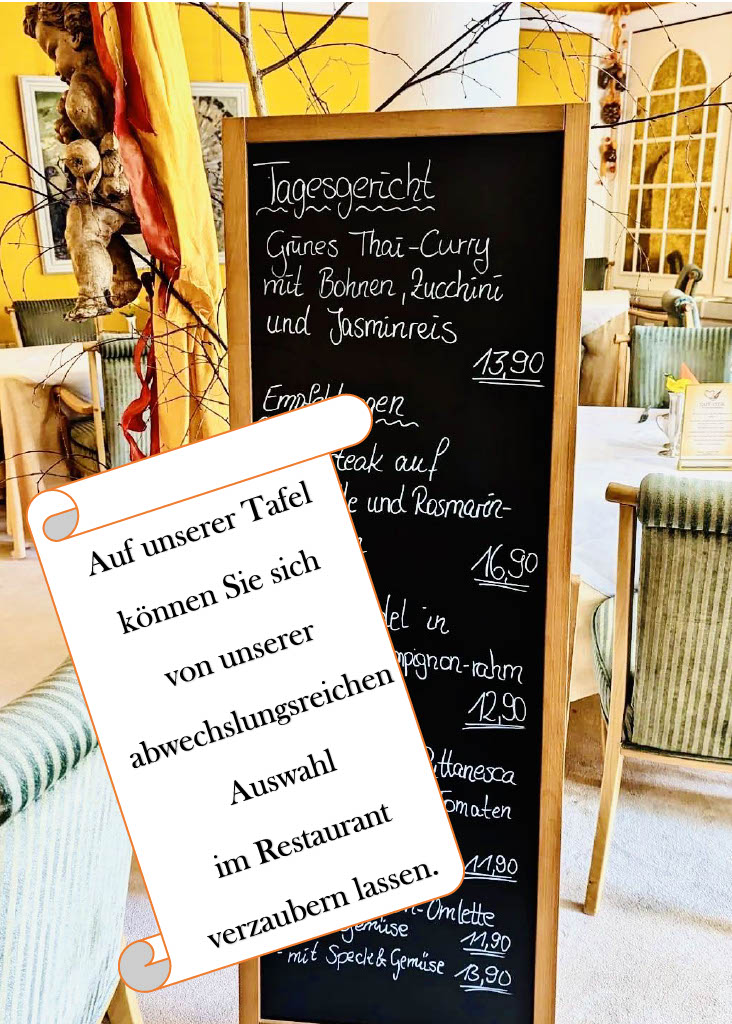 Tagesgericht
Grünes Thai-Curry
mit Bohnen, Zucchini
und Jasminreis
13,90
auf
und Rosmarin-
16,90
in
12,90
Tomaten
11,90
Omlette
11,90
- mit Speck & Gemüse 13,90
Auf unserer Tafel
können Sie sich
von unserer
abwechslungsreichen
Auswahl
im Restaurant
verzaubern lassen.